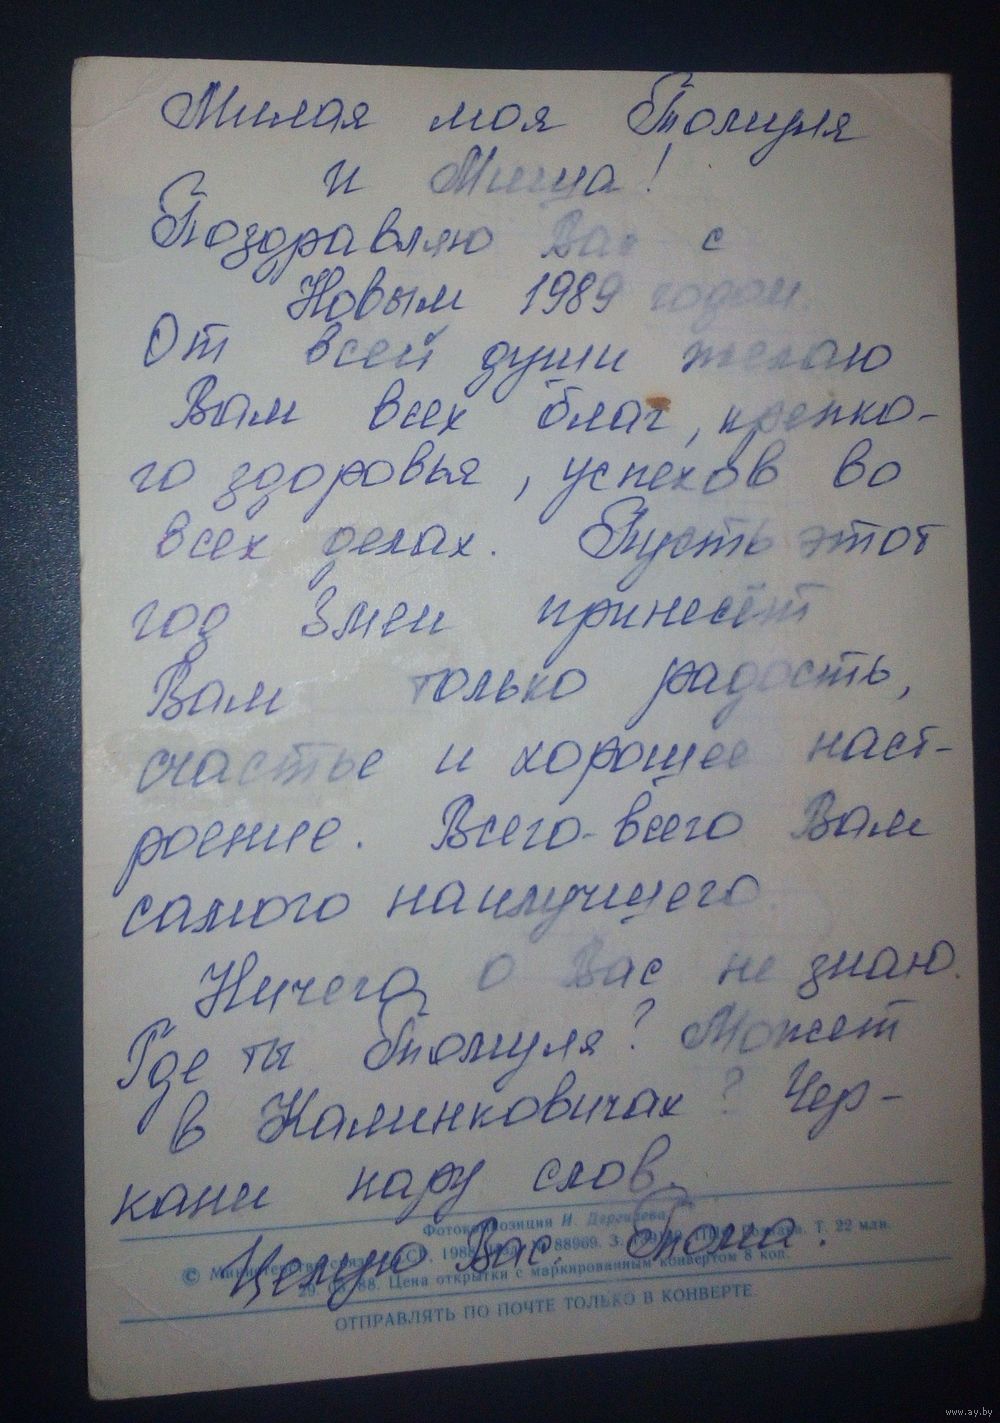 Милая моя Томуля
и Миша!
Поздравляю Вас с
Новым 1989 годом.
От всей души желаю
Вам всех благ, крепко-
го здоровья, успехов во
всех делах. Пусть этот
год Змеи принесёт
Вам только радость,
счастье и хорошее наст-
роение. Всего-всего Вам
самого наилучшего.
Ничего о Вас не знаю.
Где ты Томуля? Может
в Калинковичах? Чер-
кани пару слов.
Целую Вас. Тома.
Фотокомпозиция И. Дергилева
© Министерство связи СССР, 1988. 88969. З. Т. 22 млн.
29. 03. 88. Цена открытки с маркированным конвертом 8 коп.
ОТПРАВЛЯТЬ ПО ПОЧТЕ ТОЛЬКО В КОНВЕРТЕ.
www.ay.by